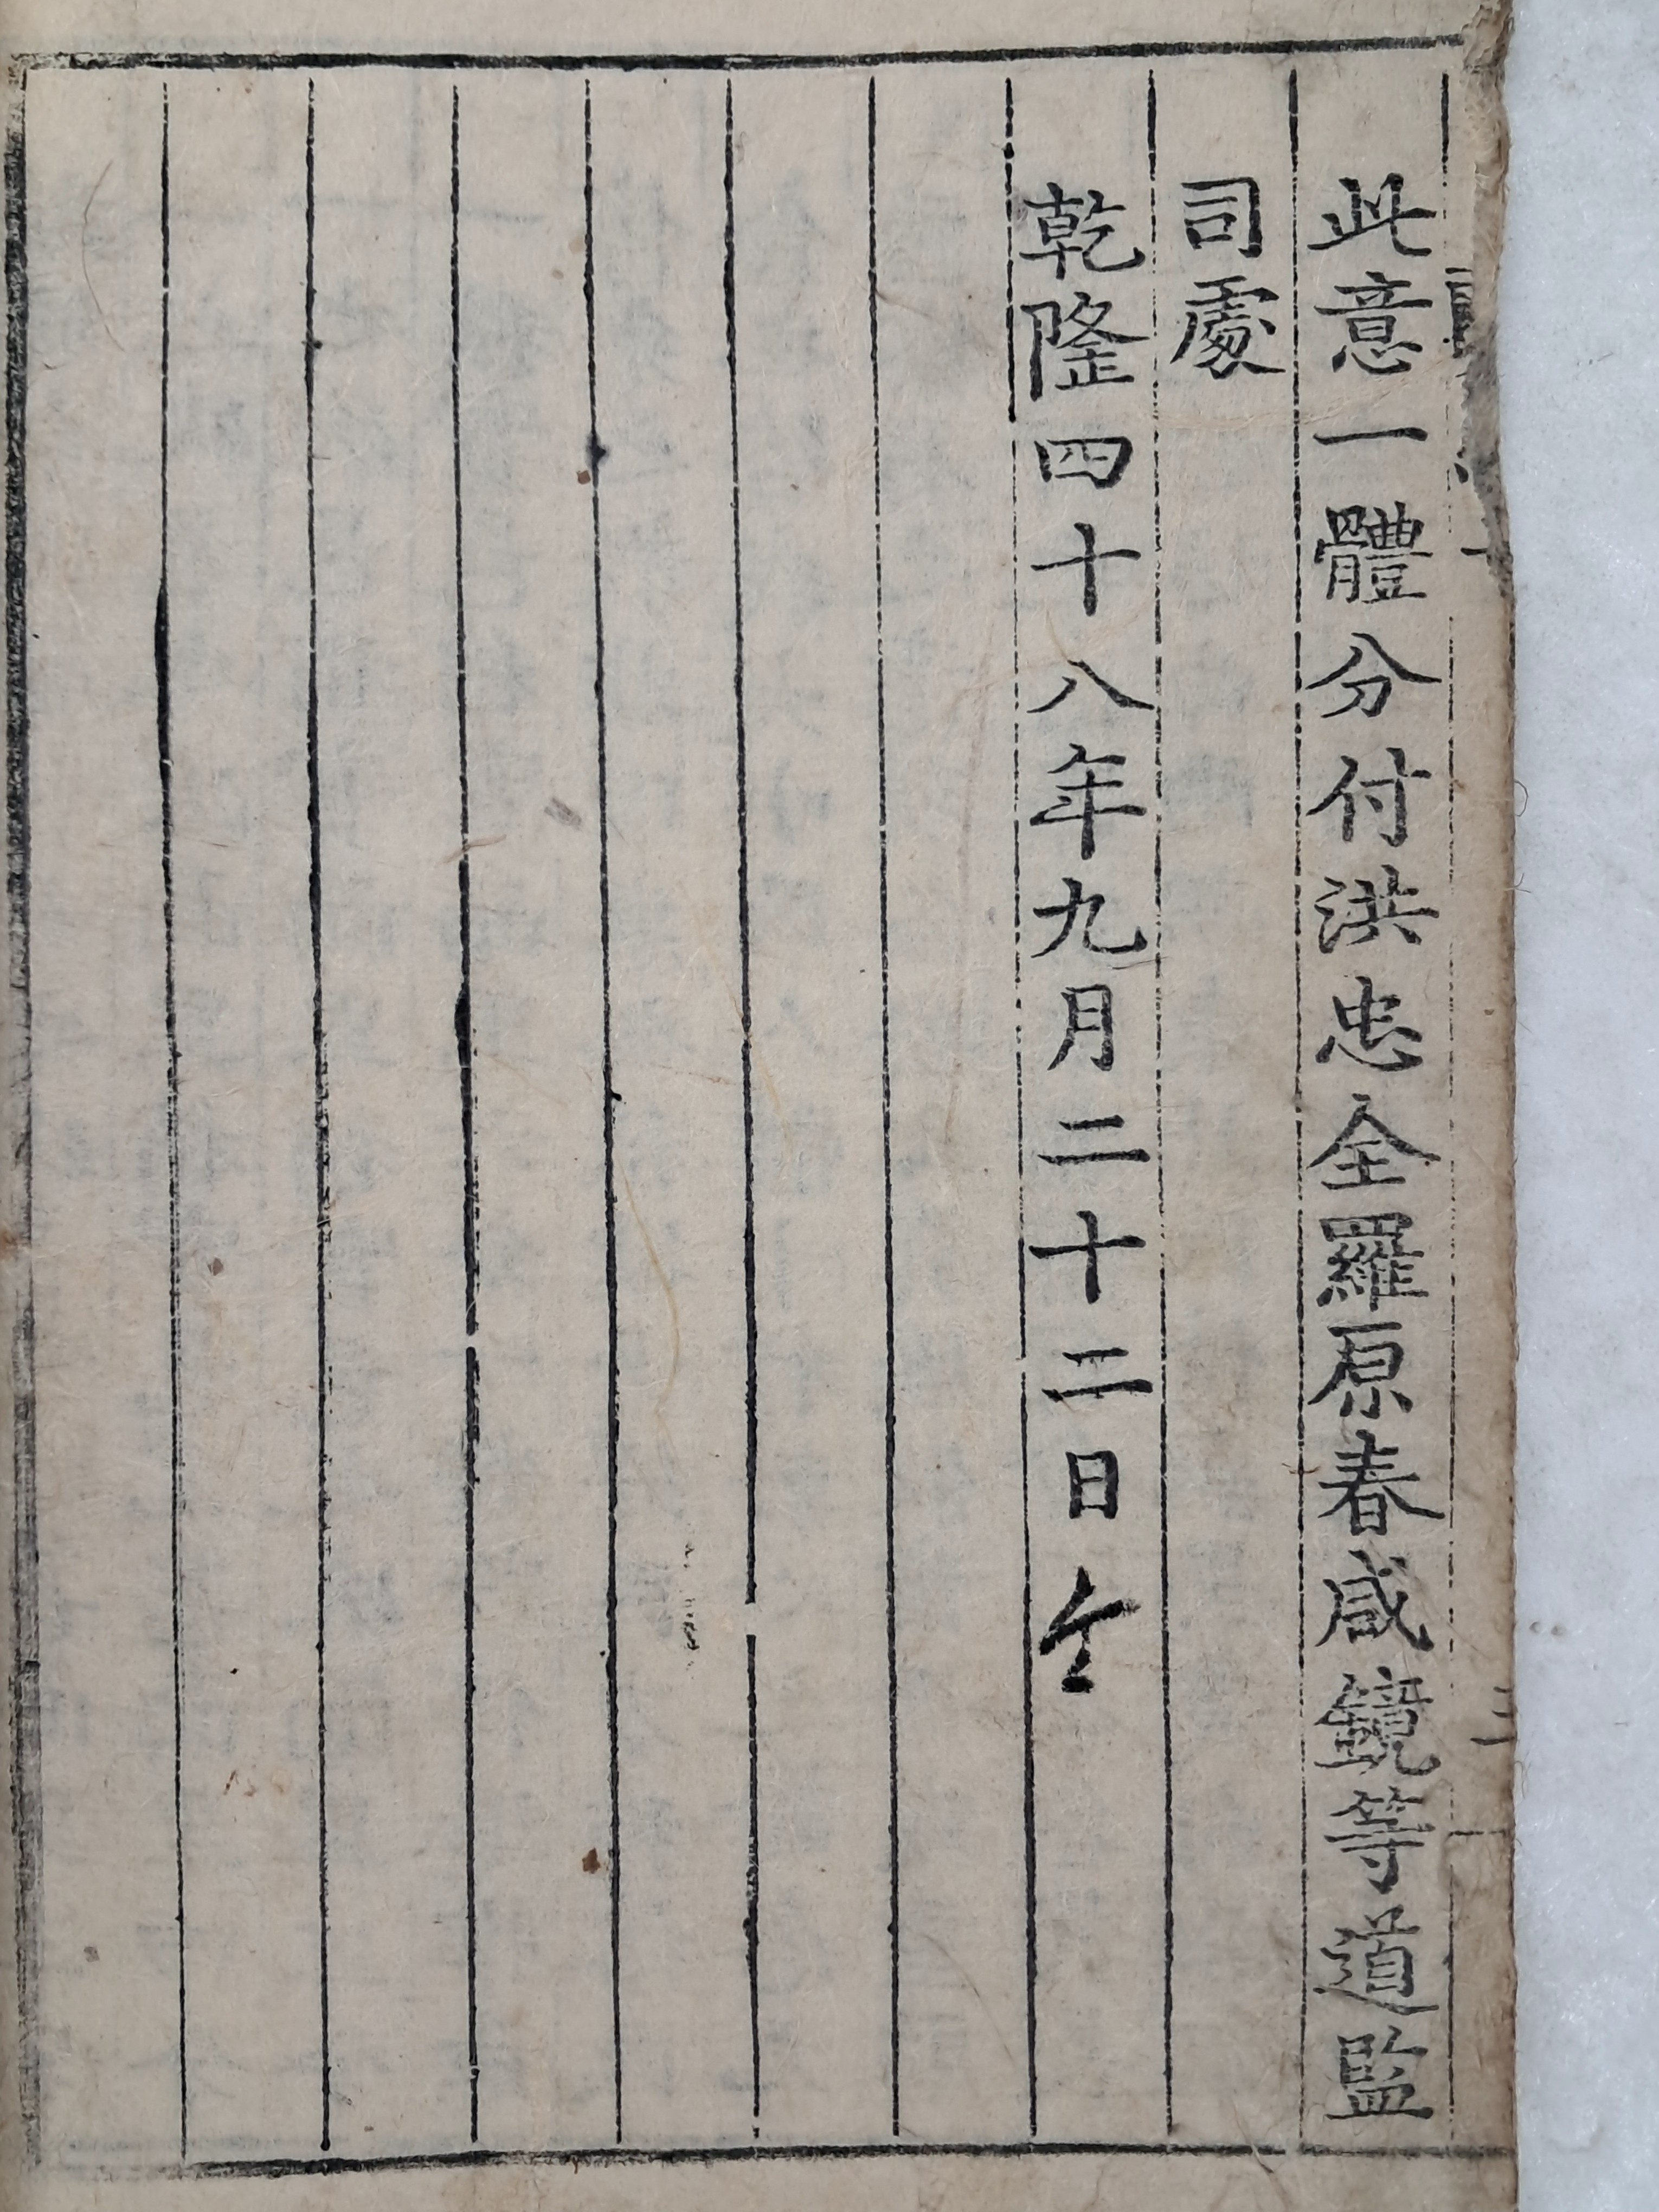 此意一體分付洪忠全羅原春咸鏡等道監
司處
乾隆四十八年九月二十二日